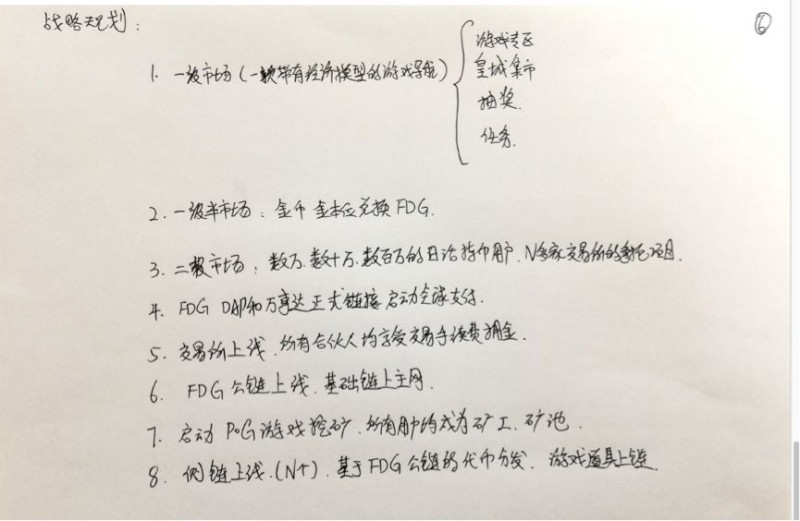 战略规划：
⑥
1. 一级市场（一款带有经济模型的游戏 { 游戏专区
皇城集市
抽奖
任务.
2. 一级半市场：金币金本位兑换FDG.
3. 二级市场：数万.数十万.数百万的日活持币用户.N多家交易所的项目.
4. FDG DAPP和万事达正式链接启动全球支付.
5. 交易所上线.所有合伙人均享受交易手续费佣金.
6. FDG公链上线.基础链上主网.
7. 启动POG游戏挖矿.所有用户均成为矿工.矿池.
8. 侧链上线.(N个).基于FDG公链的代币分发.游戏道具上链.